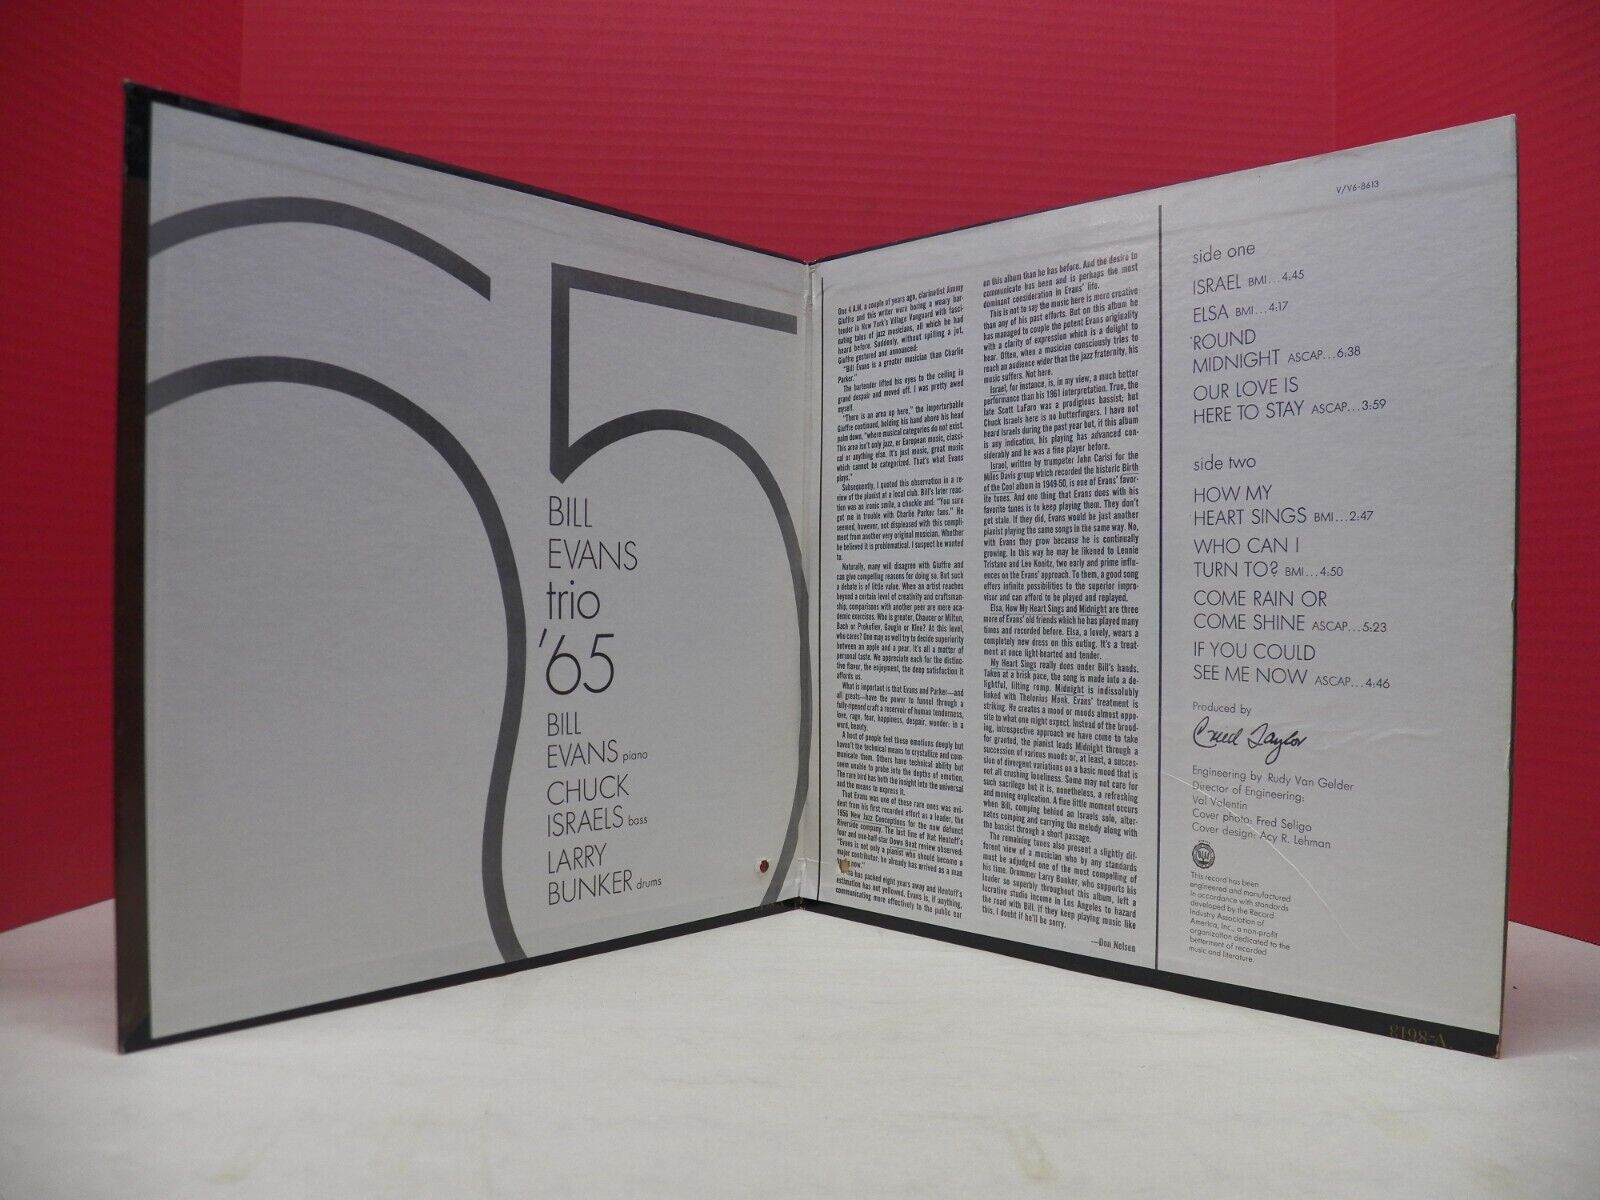 65
BILL
EVANS
trio
'65
BILL
EVANS piano
CHUCK
ISRAELS bass
LARRY
BUNKER drums
One 4 A.M. a couple of years ago, clarinetist Jimmy
Giuffre and this writer were boring a weary bar-
tender in New York's Village Vanguard with fasci-
nating tales of jazz musicians, all which he had
heard before. Suddenly, without spilling a jot,
Giuffre gestured and announced:
"Bill Evans is a greater musician than Charlie
Parker."
The bartender lifted his eyes to the ceiling in
grand despair and moved off. I was pretty awed
myself.
"There is an area up here," the imperturbable
Giuffre continued, holding his hand above his head
palm down, "where musical categories do not exist.
This area isn't only jazz, or European music, classi-
cal or anything else. It's just music, great music
which cannot be categorized. That's what Evans
plays."
Subsequently, I quoted this observation in a re-
view of the pianist at a local club. Bill's later reac-
tion was an ironic smile, a chuckle and: "You sure
got me in trouble with Charlie Parker fans." He
seemed, however, not displeased with this compli-
ment from another very original musician. Whether
he believed it is problematical. I suspect he wanted
to.
Naturally, many will disagree with Giuffre and
can give compelling reasons for doing so. But such
a debate is of little value. When an artist reaches
beyond a certain level of creativity and craftsman-
ship, comparisons with another peer are mere aca-
demic exercises. Who is greater, Chaucer or Milton,
Bach or Prokofiev, Gaugin or Klee? At this level,
who cares? One may as well try to decide superiority
between an apple and a pear. It's all a matter of
personal taste. We appreciate each for the distinc-
tive flavor, the enjoyment, the deep satisfaction it
affords us.
What is important is that Evans and Parker—and
all greats—have the power to funnel through a
fully-ripened craft a reservoir of human tenderness,
love, rage, fear, happiness, despair, wonder: in a
word, beauty.
A host of people feel these emotions deeply but
haven't the technical means to crystallize and com-
municate them. Others have technical ability but
seem unable to probe into the depths of emotion.
The rare bird has both the insight into the universal
and the means to express it.
That Evans was one of these rare ones was evi-
dent from his first recorded effort as a leader, the
1956 New Jazz Conceptions for the now defunct
Riverside company. The last line of Nat Hentoff's
four and one-half-star Down Beat review observed:
"Evans is not only a pianist who should become a
major contributor; he already has arrived as a man
has packed eight years away and Hentoff's
estimation has not yellowed. Evans is, if anything,
communicating more effectively to the public ear
on this album than he has before. And the desire to
communicate has been and is perhaps the most
dominant consideration in Evans' life.
This is not to say the music here is more creative
than any of his past efforts. But on this album he
has managed to couple the potent Evans originality
with a clarity of expression which is a delight to
hear. Often, when a musician consciously tries to
reach an audience wider than the jazz fraternity, his
music suffers. Not here.
Israel, for instance, is, in my view, a much better
performance than his 1961 interpretation. True, the
late Scott LaFaro was a prodigious bassist; but
Chuck Israels here is no butterfingers. I have not
heard Israels during the past year but, if this album
is any indication, his playing has advanced con-
siderably and he was a fine player before.
Israel, written by trumpeter John Carisi for the
Miles Davis group which recorded the historic Birth
of the Cool album in 1949-50, is one of Evans' favor-
ite tunes. And one thing that Evans does with his
favorite tunes is to keep playing them. They don't
get stale. If they did, Evans would be just another
pianist playing the same songs in the same way. No,
with Evans they grow because he is continually
growing. In this way he may be likened to Lennie
Tristano and Lee Konitz, two early and prime influ-
ences on the Evans' approach. To them, a good song
offers infinite possibilities to the superior impro-
visor and can afford to be played and replayed.
Elsa, How My Heart Sings and Midnight are three
more of Evans' old friends which he has played many
times and recorded before. Elsa, a lovely, wears a
completely new dress on this outing. It's a treat-
ment at once light-hearted and tender.
My Heart Sings really does under Bill's hands.
Taken at a brisk pace, the song is made into a de-
lightful, lilting romp. Midnight is indissolubly
linked with Thelonius Monk. Evans' treatment is
striking. He creates a mood or moods almost oppo-
site to what one might expect. Instead of the brood-
ing, introspective approach we have come to take
for granted, the pianist leads Midnight through a
succession of various moods or, at least, a succes-
sion of divergent variations on a basic mood that is
not all crushing loneliness. Some may not care for
such sacrilege but it is, nonetheless, a refreshing
and moving explication. A fine little moment occurs
when Bill, comping behind an Israels solo, alter-
nates comping and carrying the melody along with
the bassist through a short passage.
The remaining tunes also present a slightly dif-
ferent view of a musician who by any standards
must be adjudged one of the most compelling of
his time. Drummer Larry Bunker, who supports his
leader so superbly throughout this album, left a
lucrative studio income in Los Angeles to hazard
the road with Bill. If they keep playing music like
this, I doubt if he'll be sorry.
—Don Nelsen
V/V6-8613
side one
ISRAEL BMI...4:45
ELSA BMI...4:17
'ROUND
MIDNIGHT ASCAP...6:38
OUR LOVE IS
HERE TO STAY ASCAP...3:59
side two
HOW MY
HEART SINGS BMI...2:47
WHO CAN I
TURN TO? BMI...4:50
COME RAIN OR
COME SHINE ASCAP...5:23
IF YOU COULD
SEE ME NOW ASCAP...4:46
Produced by
Creed Taylor
Engineering by Rudy Van Gelder
Director of Engineering:
Val Valentin
Cover photo: Fred Seligo
Cover design: Acy R. Lehman
This record has been
engineered and manufactured
in accordance with standards
developed by the Record
Industry Association of
America, Inc., a non-profit
organization dedicated to the
betterment of recorded
music and literature.
V-8613